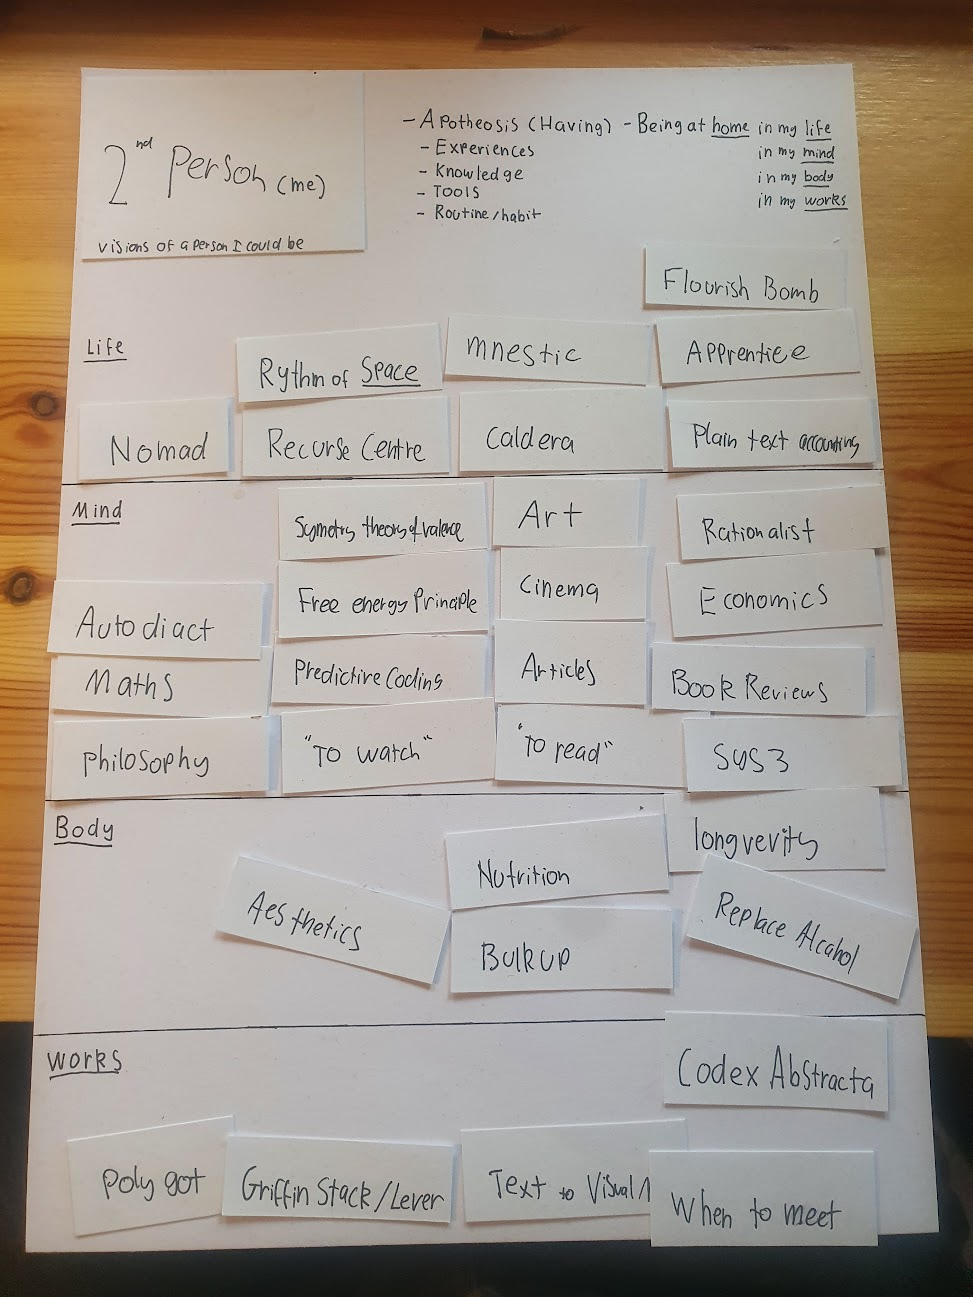 2nd Person (me)
visions of a person I could be
- Apotheosis (Having) - Being at home in my life
- Experiences
in my mind
- Knowledge
in my body
- Tools
in my works
- Routine/habit
Flourish Bomb
Life
Rythm of Space
mnestic
Apprentice
Nomad
Recurse Centre
Caldera
Plain text accounting
Mind
Symetry theory of valence
Art
Rationalist
Autodiact
Free energy Principle
Cinema
Economics
Maths
Predictive Coding
Articles
Book Reviews
Philosophy
"To watch"
"To read"
Sys3
Body
longvevity
Nutrition
Aesthetics
Bulk up
Replace Alcahol
Works
Codex Abstracta
Polygot
Griffin Stack/Lever
Text to Visual
When to meet